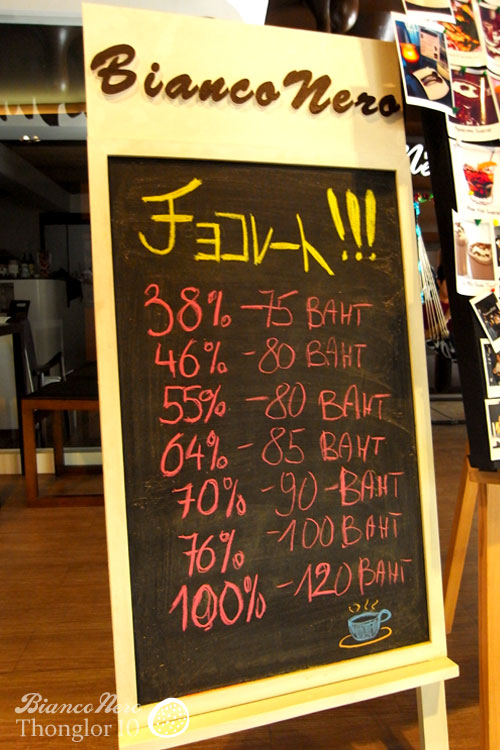 Bianco Nero
チョコレート!!!
38% - 75 BAHT
46% - 80 BAHT
55% - 80 BAHT
64% - 85 BAHT
70% - 90 - BAHT
76% - 100 BAHT
100% - 120 BAHT
Bianco Nero
Thonglor 10